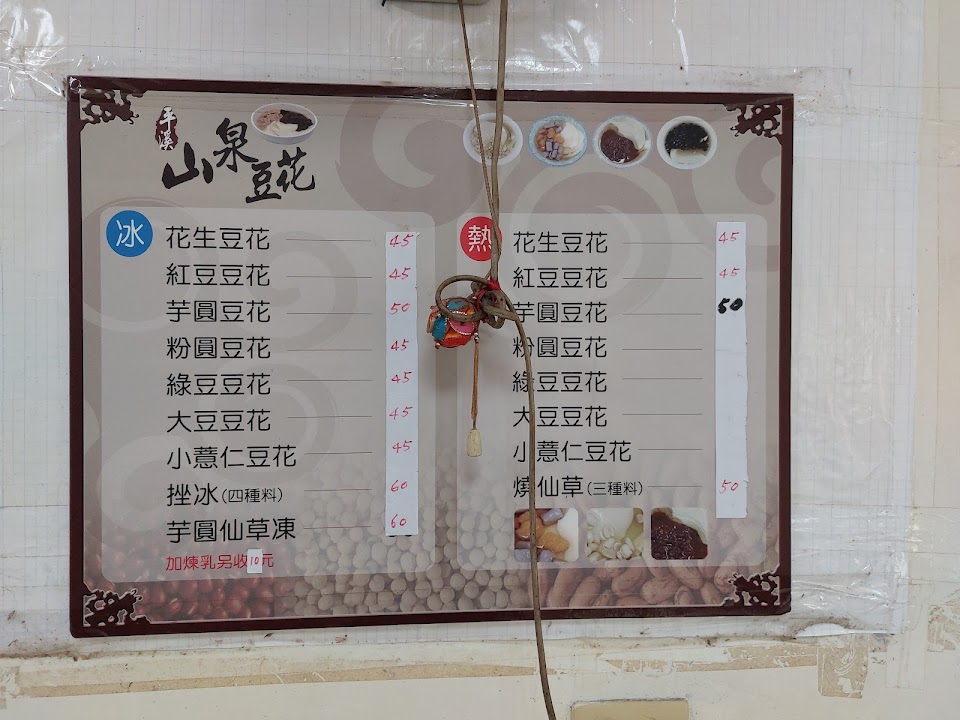 平溪
山泉豆花
冰
花生豆花 45
紅豆豆花 45
芋圓豆花 50
粉圓豆花 45
綠豆豆花 45
大豆豆花 45
小薏仁豆花 45
挫冰(四種料) 60
芋圓仙草凍 60
加煉乳另收10元
熱
花生豆花 45
紅豆豆花 45
芋圓豆花 50
粉圓豆花
綠豆豆花
大豆豆花
小薏仁豆花
燒仙草(三種料) 50